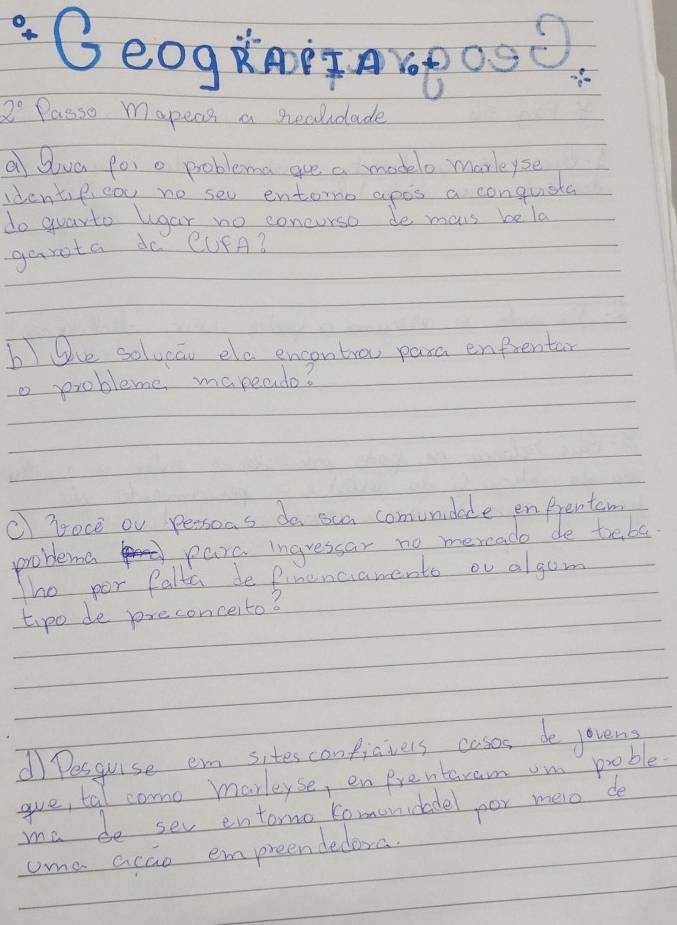 GeogRAfIA
2º Passo Mapear a realidade
a) Qual foi o problema que a modelo Marleyse
identificou no seu entorno após a conquista
do quarto lugar no concurso de mais bela
garota da CUFA?
b) Que solução ela encontrou para enfrentar
o problema mapeado?
c) Você ou pessoas da sua comunidade enfrentam
problema para ingressar no mercado de traba-
lho por falta de financiamento ou algum
tipo de preconceito?
d) Pesquise em sites confiáveis casos de jovens
que, tal como Marleyse, enfrentaram um proble-
ma de seu entorno (comunidade) por meio de
uma ação empreendedora.